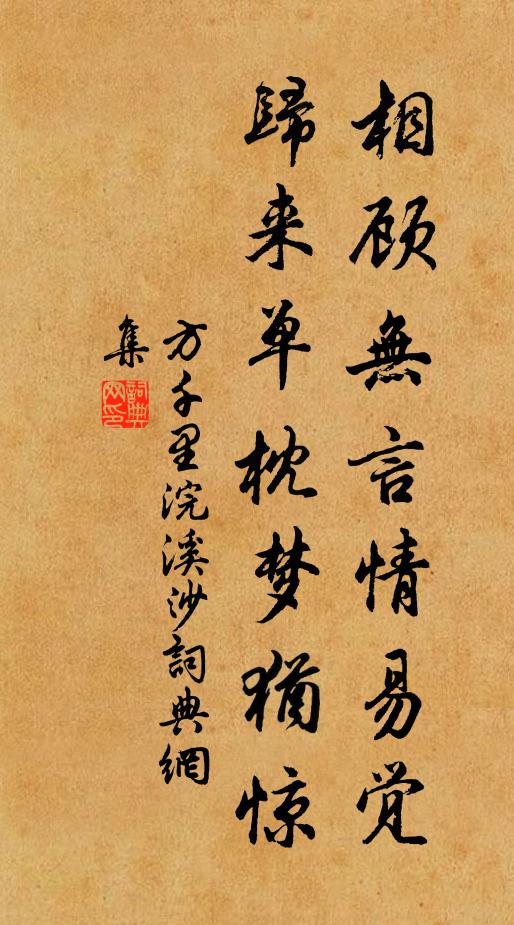 相顾無言情易觉
歸来单枕梦猶惊
方千里浣溪沙詞典網
集
詞典网印